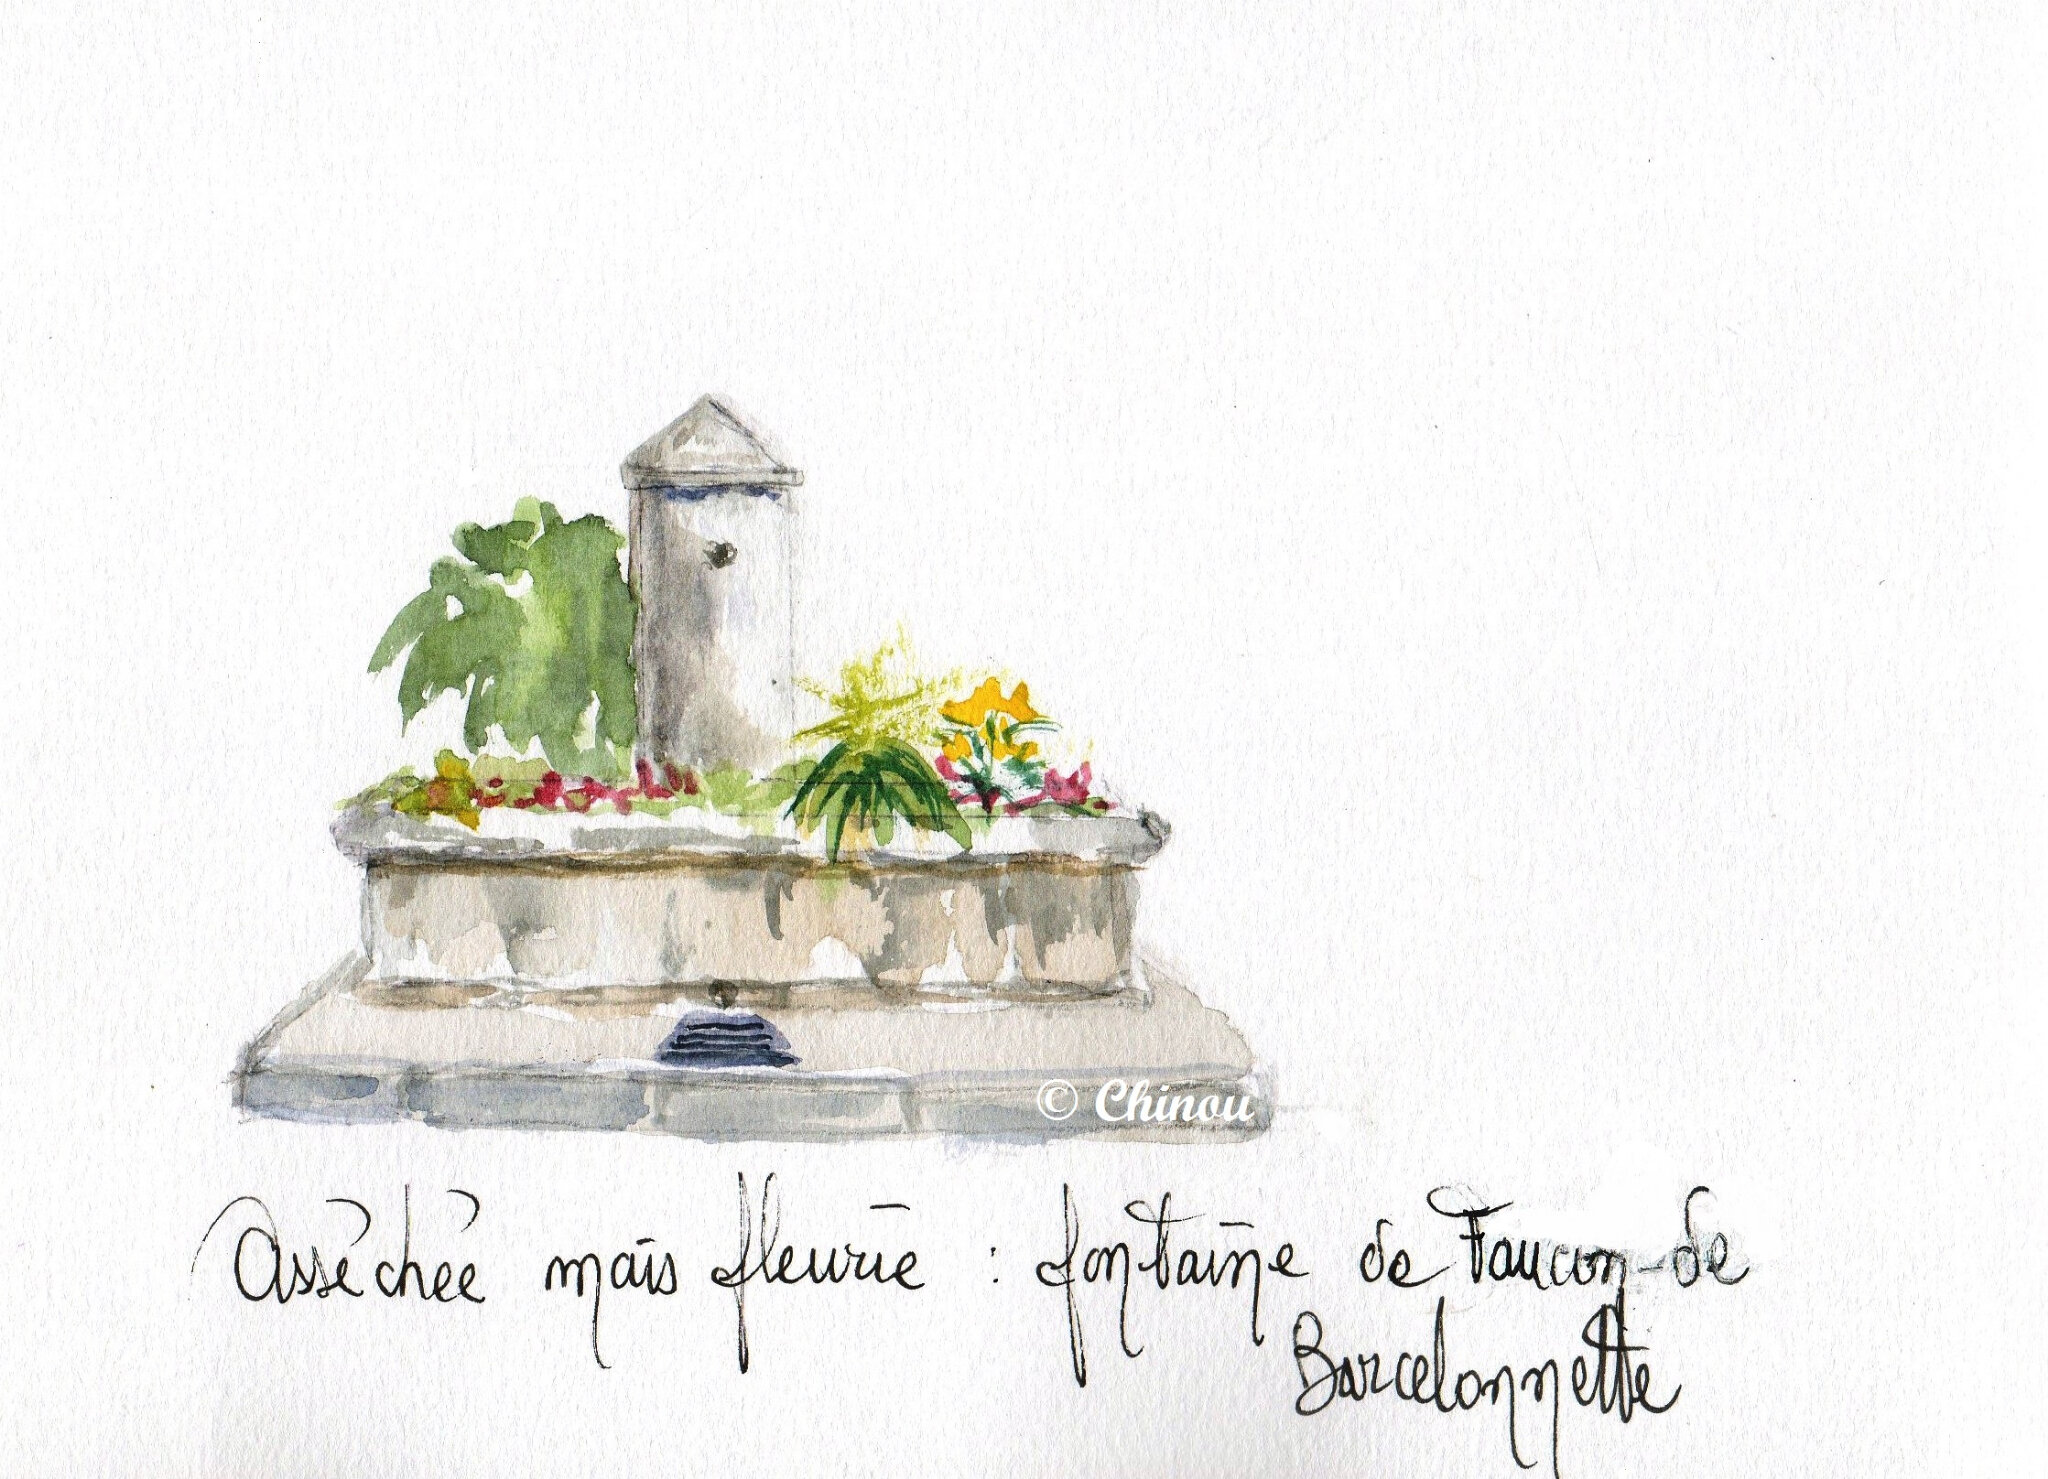 © Chinou
Asséchée mais fleurie : fontaine de Faucon-de
Barcelonnette